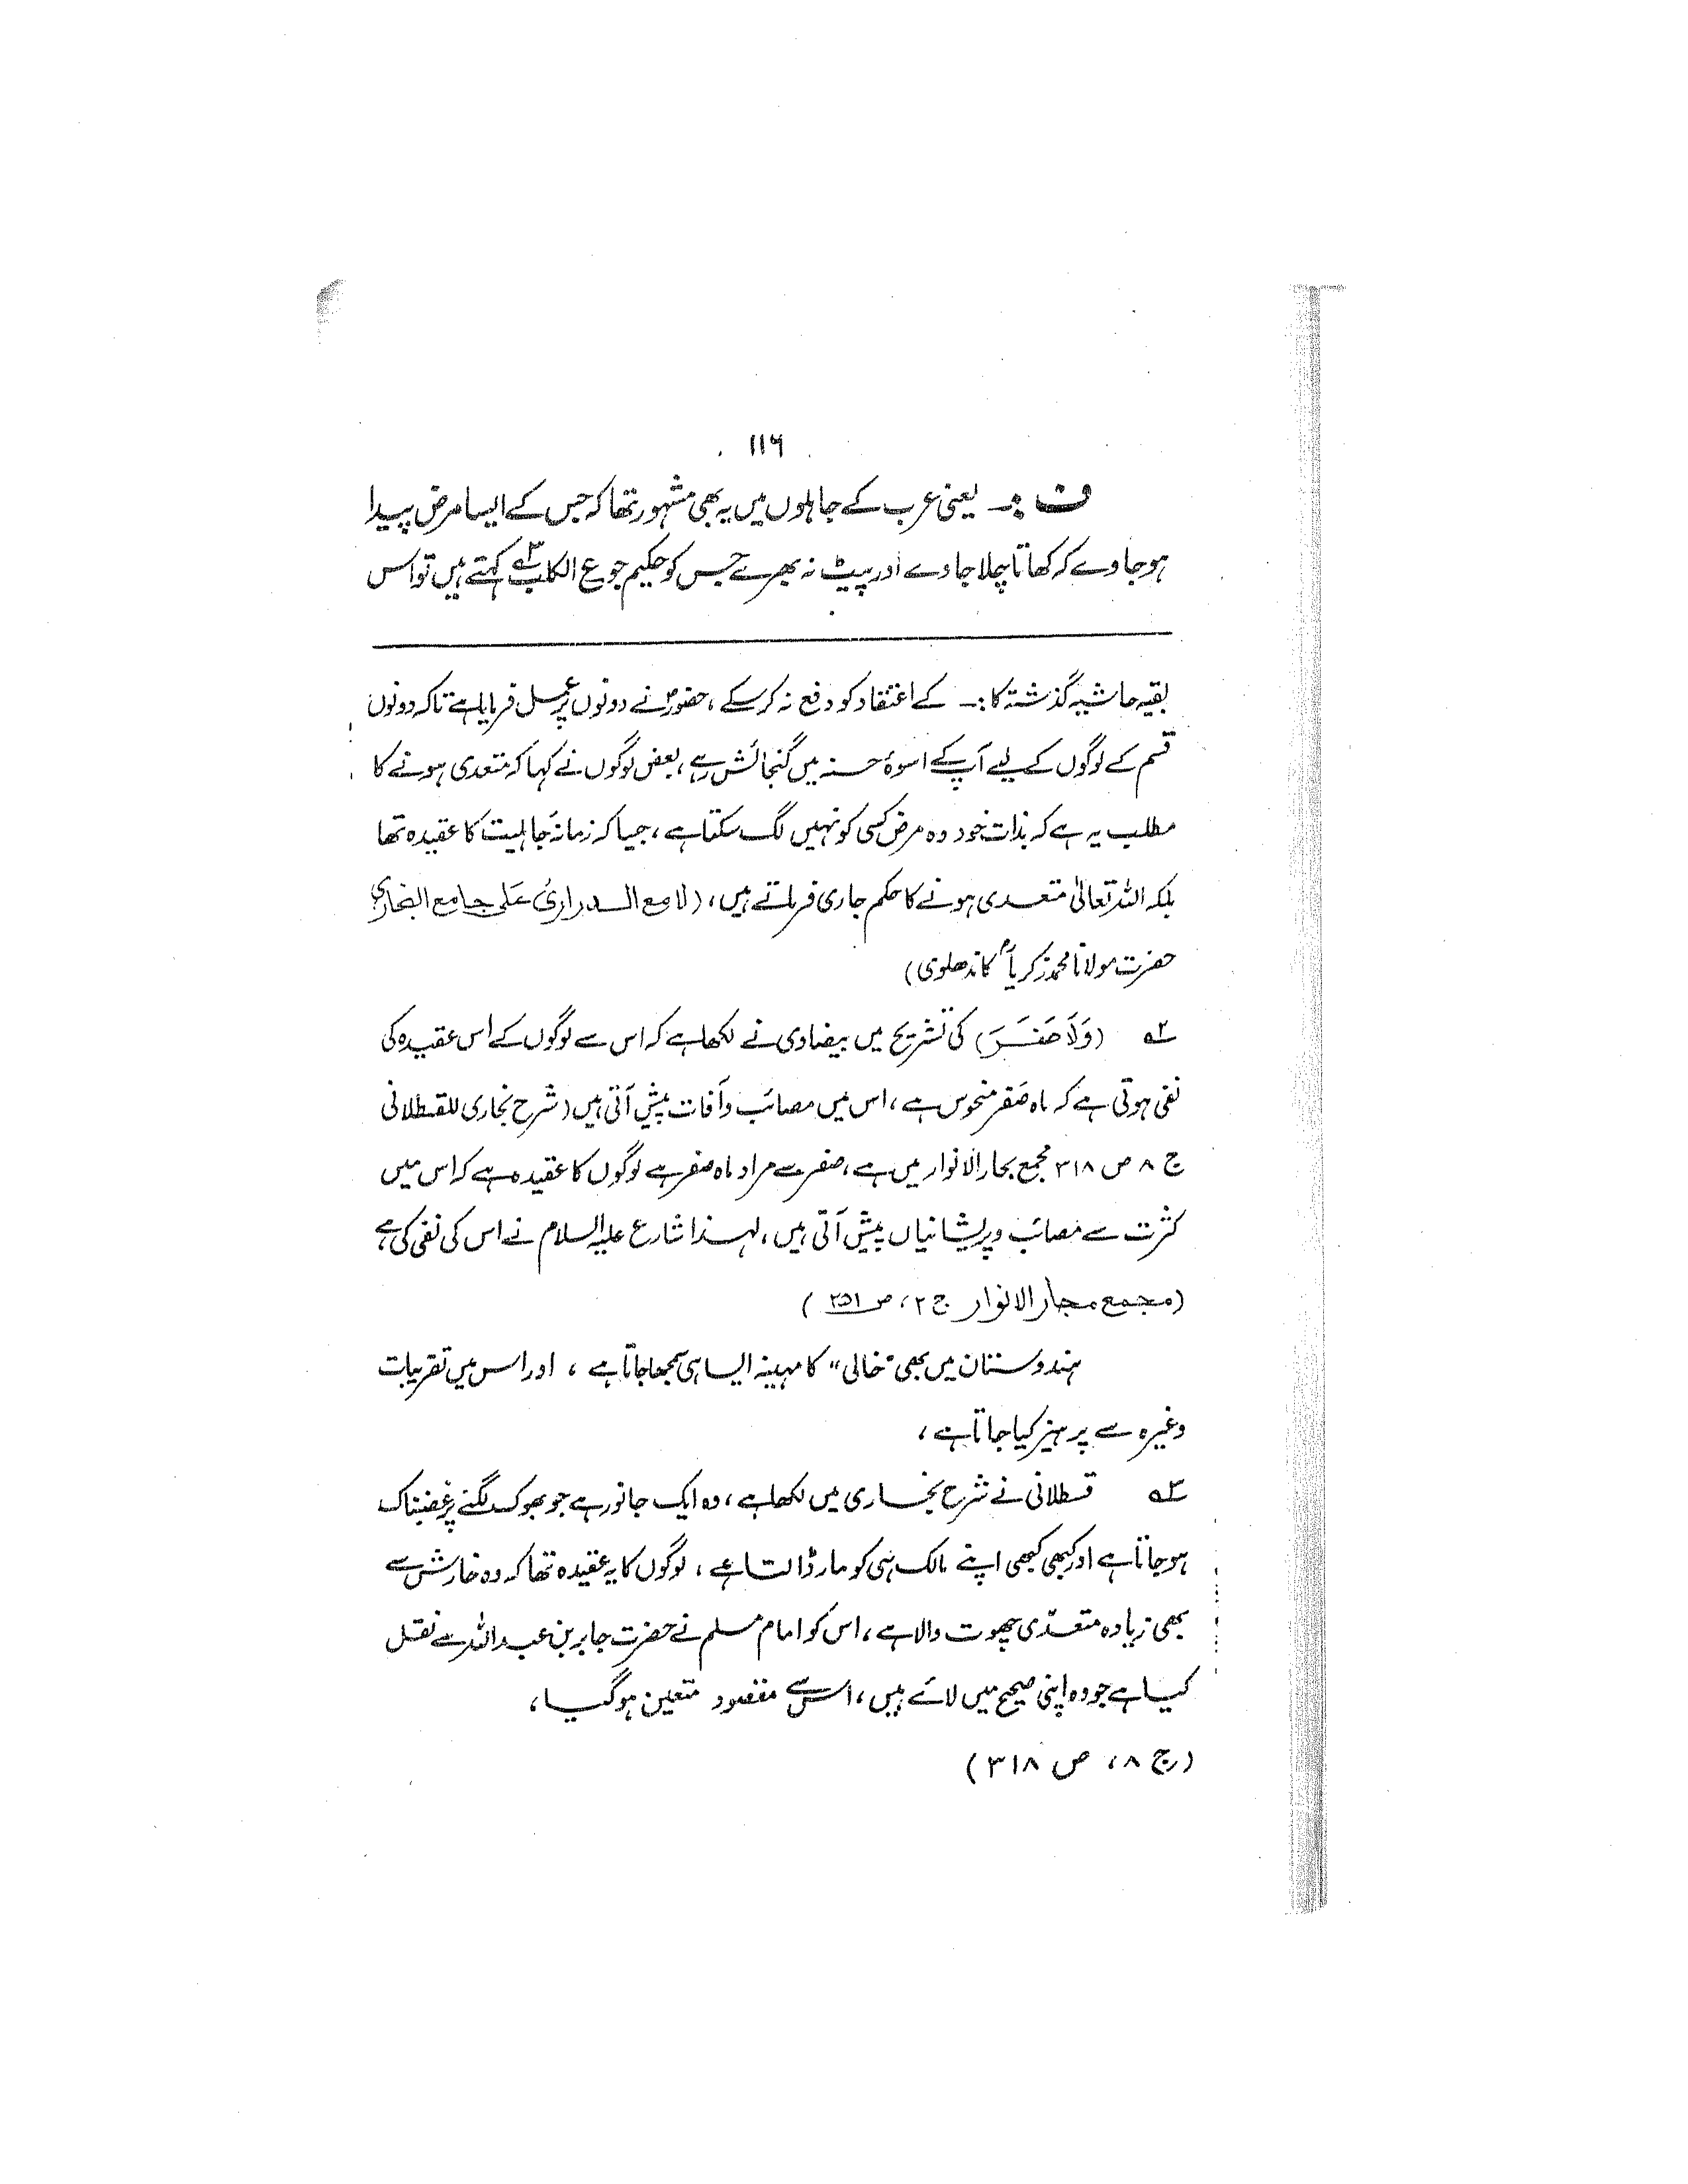 ۱۱۶
ف :۔ یعنی عرب کے جاہلوں میں یہ بھی مشہور تھا کہ جس کے ایسا مرض پیدا
ہو جاوے کہ کھاتا چلا جاوے اور پیٹ نہ بھرے جس کو حکیم جوع الکلب ۳؎ کہتے ہیں تو اس
بقیہ حاشیہ گذشتہ کا :۔ کے اعتقاد کو دفع نہ کر سکے، حضورؐ نے دونوں پر عمل فرمایا ہے تاکہ دونوں
قسم کے لوگوں کے لیے آپ کے اسوۂ حسنہ میں گنجائش رہے، بعض لوگوں نے کہا کہ متعدی ہونے کا
مطلب یہ ہے کہ بذات خود وہ مرض کسی کو نہیں لگ سکتا ہے، جیسا کہ زمانۂ جاہلیت کا عقیدہ تھا
بلکہ اللہ تعالیٰ متعدی ہونے کا حکم جاری فرماتے ہیں، (لامع الدراری علی جامع البخاری
حضرت مولانا محمد زکریاؒ کاندھلوی)
۲؎ (وَلَا صَفَرَ) کی تشریح میں بیضاوی نے لکھا ہے کہ اس سے لوگوں کے اس عقیدہ کی
نفی ہوتی ہے کہ ماہ صفر منحوس ہے، اس میں مصائب و آفات پیش آتی ہیں (شرح بخاری للقسطلانی
ج ۸ ص ۳۱۸ مجمع بحار الانوار میں ہے، صفر سے مراد ماہ صفر ہے لوگوں کا عقیدہ ہے کہ اس میں
کثرت سے مصائب و پریشانیاں پیش آتی ہیں، لہذا شارع علیہ السلام نے اس کی نفی کی ہے
(مجمع بحار الانوار ج ۲، ص ۲۵۱)
ہندوستان میں بھی "خالی" کا مہینہ ایسا ہی سمجھا جاتا ہے، اور اس میں تقریبات
وغیرہ سے پرہیز کیا جاتا ہے،
۳؎ قسطلانی نے شرح بخاری میں لکھا ہے، وہ ایک جانور ہے جو بھوک لگنے پر غضبناک
ہو جاتا ہے اور کبھی کبھی اپنے مالک ہی کو مار ڈالتا ہے، لوگوں کا یہ عقیدہ تھا کہ وہ خارش سے
بھی زیادہ متعدّی چھوت والا ہے، اس کو امام مسلم نے حضرت جابر بن عبد اللہ سے نقل
کیا ہے جو وہ اپنی صحیح میں لائے ہیں، اس سے مقصود متعین ہو گیا،
(ج ۸، ص ۳۱۸)